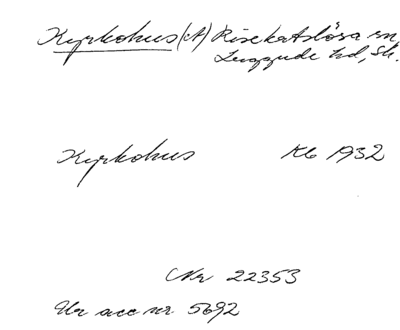 Kyrkohus (A) Risekatslösa sn,
Luggude hd, Sk.
Kyrkohus Kb 1932
Nr 22353
Ur acc nr 5692